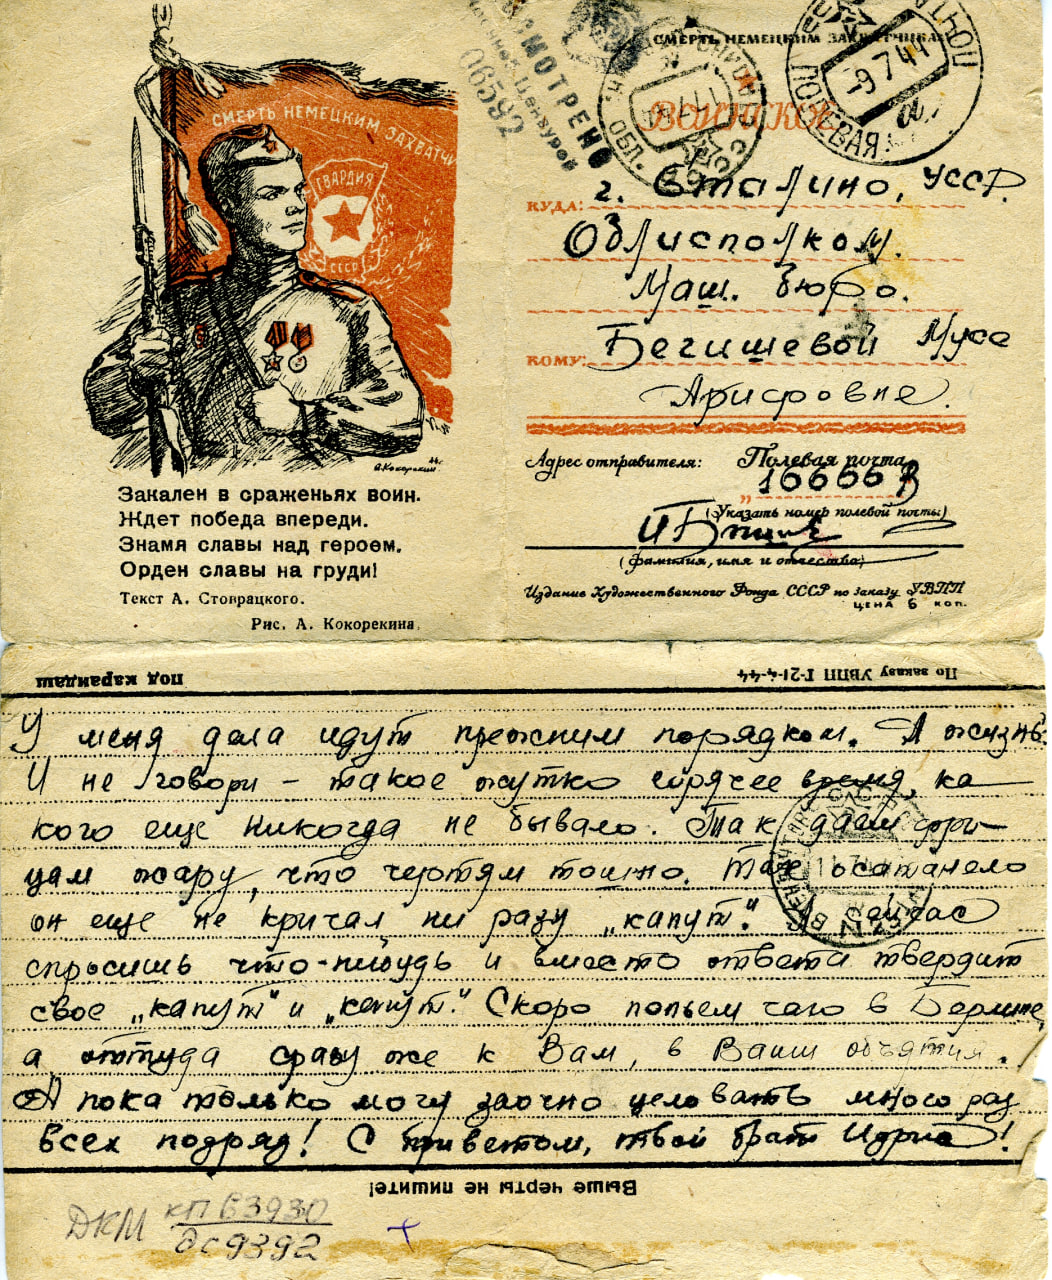 СМЕРТЬ НЕМЕЦКИМ ЗАХВАТЧИКАМ
ВОИНСКОЕ
ПРОСМОТРЕНО
Военной Цензурой
06592
ПОЛЕВАЯ
-9 7 44
ОБЛ.
СМЕРТЬ НЕМЕЦКИМ ЗАХВАТЧИ
ГВАРДИЯ
СССР
КУДА: г. Сталино, УССР.
Облисполком.
Маш. бюро.
КОМУ: Бегишевой Муса
Арифовне.
Адрес отправителя: Полевая почта
„16666 В
(Указать номер полевой почты)
(фамилия, имя и отчество)
Издание Художественного Фонда СССР по заказу УВПП
ЦЕНА 6 КОП.
А. Кокорекин 44г.
Закален в сраженьях воин.
Ждет победа впереди.
Знамя славы над героем.
Орден славы на груди!
Текст А. Стоврацкого.
Рис. А. Кокорекина
под карандаш
По заказу УВПП Г-21-4-44
У меня дела идут прежним порядком. А жизнь.
И не говори – такое жутко горячее время, ка
кого еще никогда не бывало. Так даем фри-
цам жару, что чертям тошно. Так осатанело
он еще не кричал ни разу „капут". А сейчас
спросишь что-нибудь и вместо ответа твердит
свое „капут" и „капут". Скоро попьем чаю в Берлине,
а оттуда сразу же к Вам, в Ваши объятия.
А пока только могу заочно целовать много раз
всех подряд! С приветом, твой брат Идрис!
Выше черты не пишите!
ДКМ КП 63930
ДС 9392